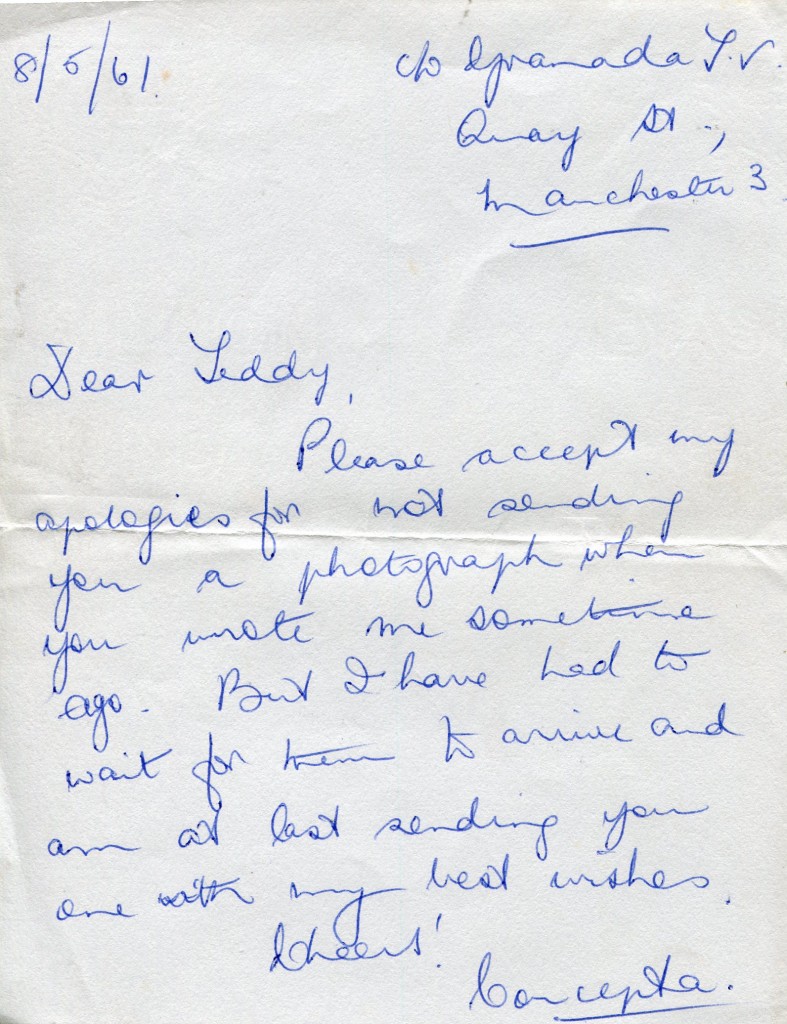 8/5/61.
c/o Granada T.V.
Quay St.,
Manchester 3
Dear Teddy,
Please accept my
apologies for not sending
you a photograph when
you wrote me sometime
ago. But I have had to
wait for them to arrive and
am at last sending you
one with my best wishes.
Cheers!
Concepta.